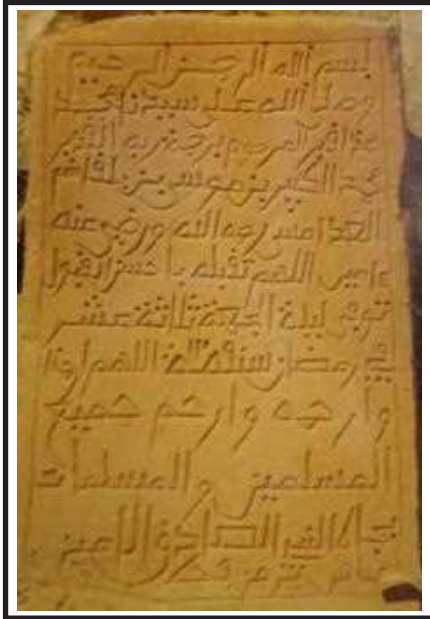 بسم الله الرحمن الرحيم
وصلى الله على سيدنا محمد
هذا قبر المرحوم برحمة ربه
محمد بن موسى بن بلقاسم
الغدامسي رحمه الله ورضي عنه
ءامين اللهم تقبله باحسن القبول
توفي ليلة الجمعة ثلاثة عشر
في رمضان سنة اللهم
وارحمه وارحم جميع
المسلمين والمسلمات
بجاه النبي الصادق الامين